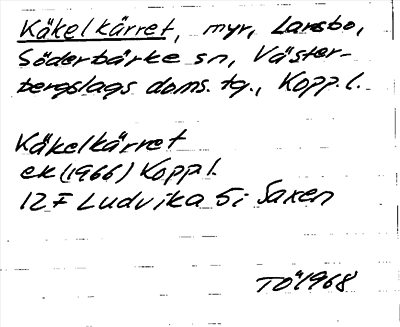 Käkelkärret, myr, Lansbo,
Söderbärke sn, Väster-
bergslags doms. tg., Kopp. l.
Käkelkärret
ek (1966) Kopp l.
12 F Ludvika 5i Saxen
TÖ 1968